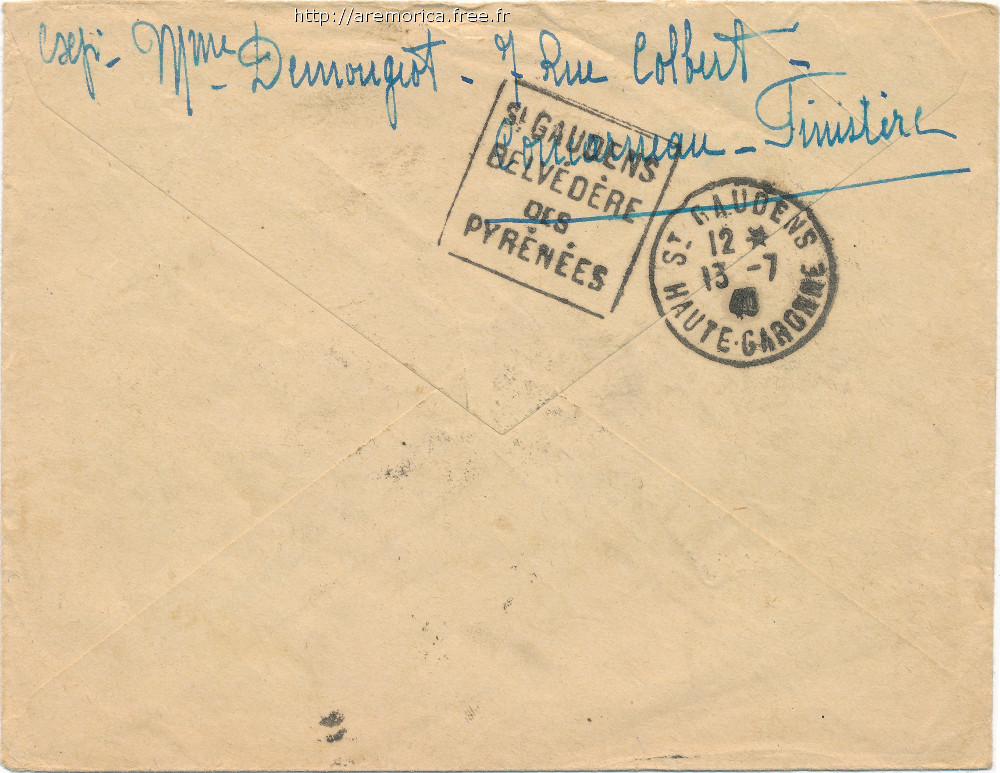 http://aremorica.free.fr
Exp - Mme Demougeot - 7 Rue Colbert -
Concarneau - Finistère
ST GAUDENS
BELVÉDÈRE
DES
PYRÉNÉES
ST GAUDENS
12 *
13 -7
40
HAUTE-GARONNE